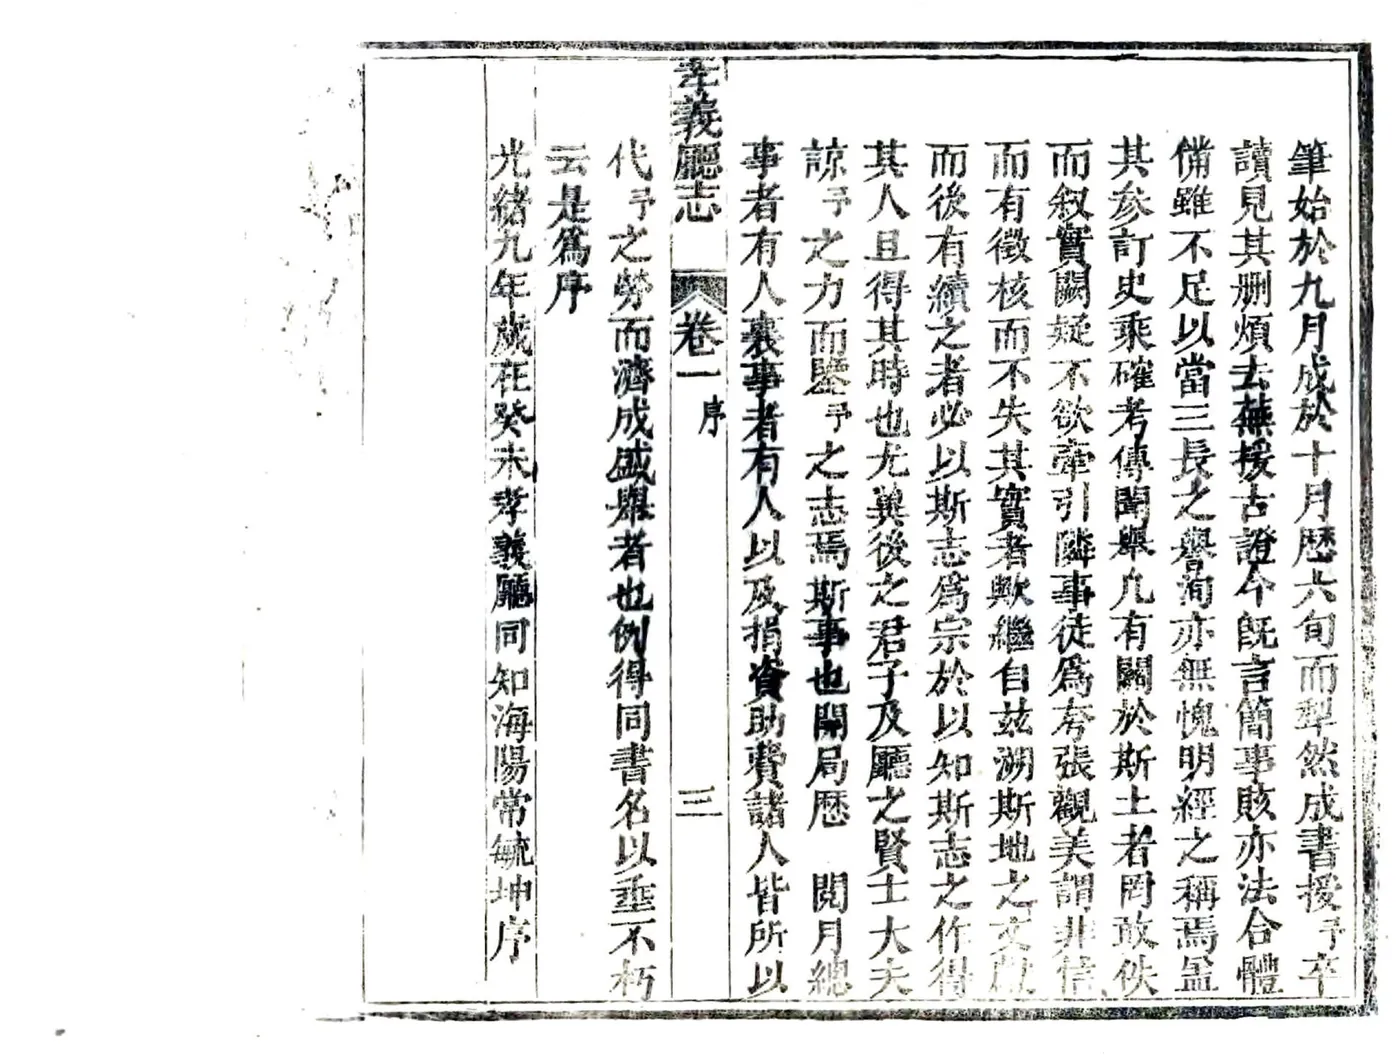 筆始於九月成於十月歷六旬而犁然成書授予卒
讀見其刪煩去蕪援古證今旣言簡事賅亦法合體
備雖不足以當三長之譽洵亦無愧明經之稱焉盖
其參訂史乘確考傳聞舉凡有關於斯土者罔敢佚
而叙實闕疑不欲牽引隣事徒爲夸張觀美謂非信
而有徵核而不失其實者歟繼自玆溯斯地之文獻
而後有續之者必以斯志爲宗於以知斯志之作得
其人且得其時也尤冀後之君子及廳之賢士大夫
諒予之力而鑒予之志焉斯事也開局歷 閱月總
事者有人襄事者有人以及捐資助費諸人皆所以
孝義廳志 卷一 序 三
代予之勞而濟成盛舉者也例得同書名以垂不朽
云是爲序
光緒九年歲在癸未孝義廳同知海陽常毓坤序